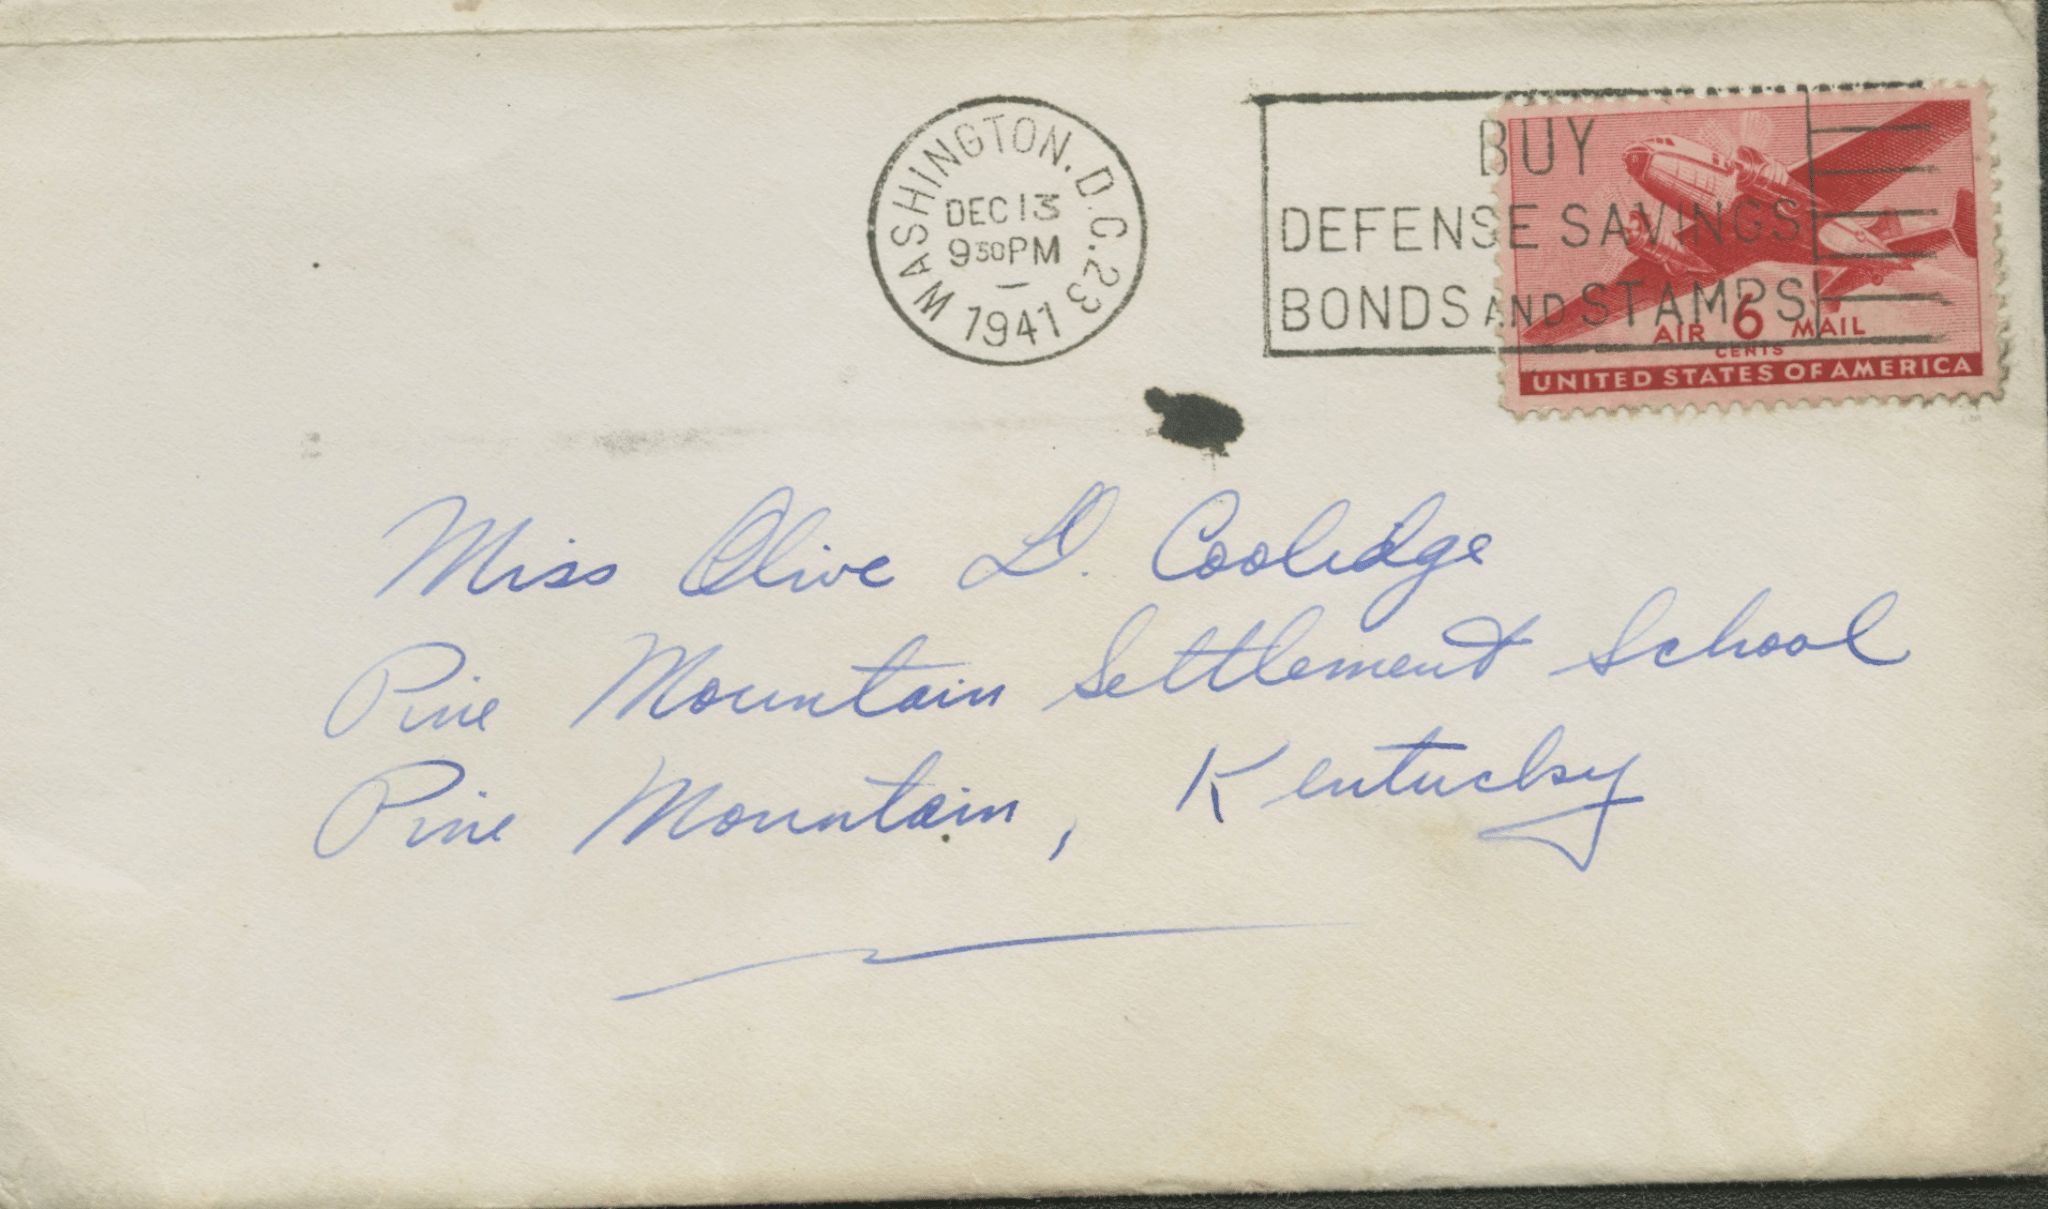 WASHINGTON, D.C. 23
DEC 13
9 30 PM
1941
BUY
DEFENSE SAVINGS
BONDS AND STAMPS
AIR 6 MAIL
CENTS
UNITED STATES OF AMERICA
Miss Olive D. Coolidge
Pine Mountain Settlement School
Pine Mountain, Kentucky